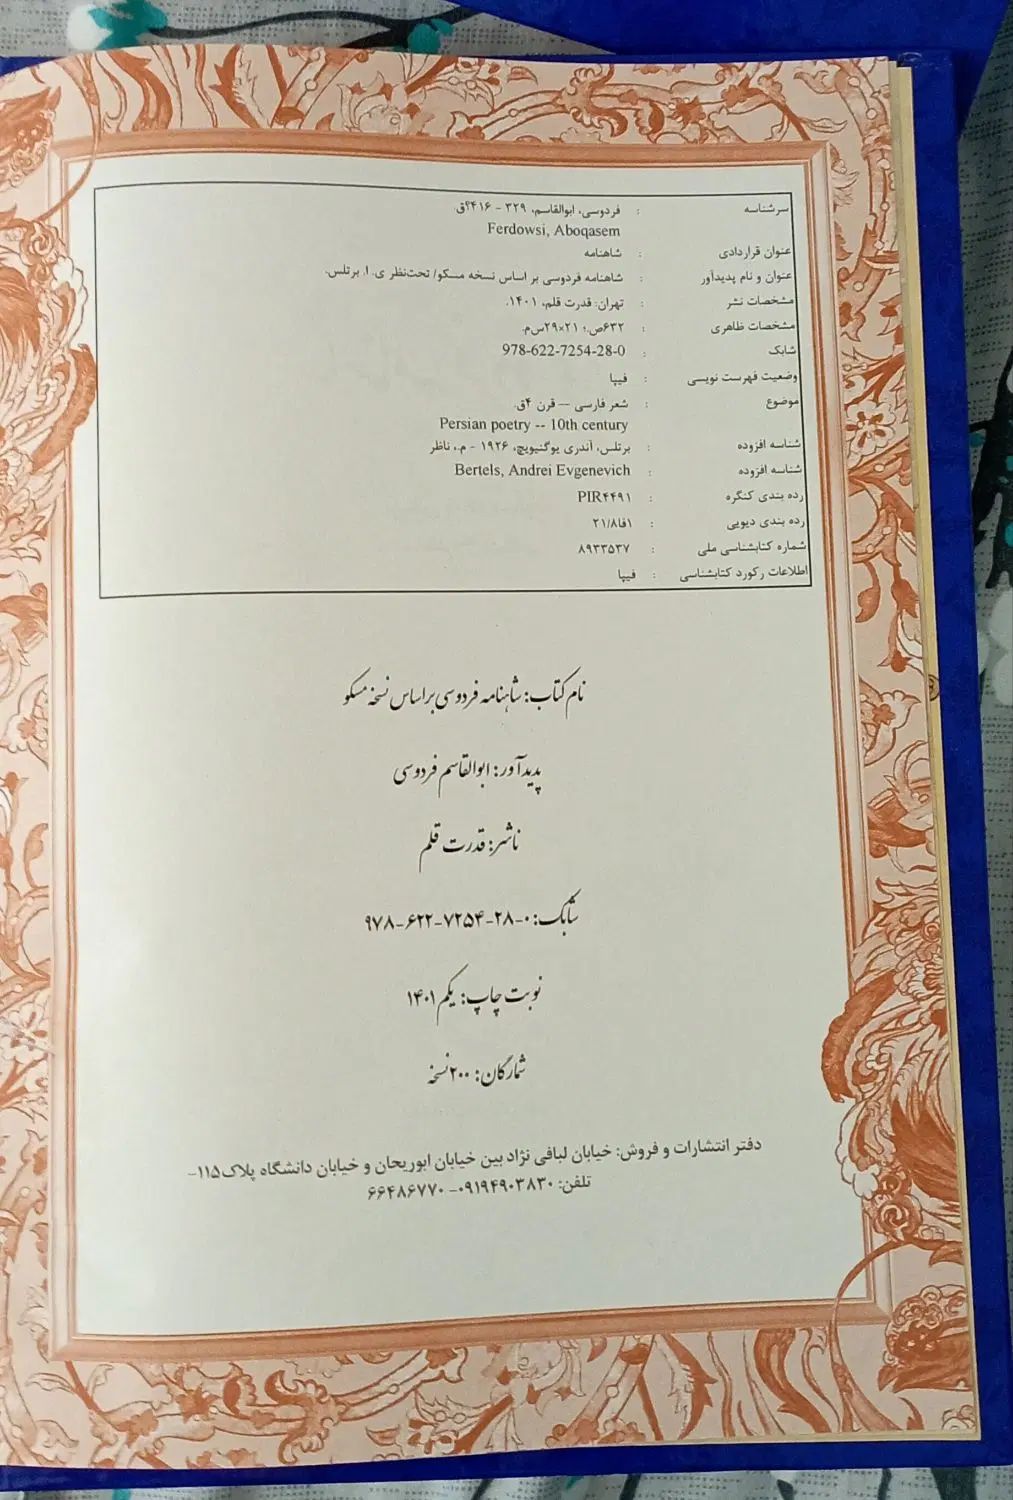 سرشناسه : فردوسی، ابوالقاسم، ۳۲۹ - ۴۱۶؟ق.
Ferdowsi, Aboqasem
عنوان قراردادی : شاهنامه
عنوان و نام پدیدآور : شاهنامه فردوسی بر اساس نسخه مسکو/ تحت‌نظر ی. ا. برتلس.
مشخصات نشر : تهران: قدرت قلم، ۱۴۰۱.
مشخصات ظاهری : ۶۳۲ص.؛ ۲۱×۲۹س‌م.
شابک : 978-622-7254-28-0
وضعیت فهرست نویسی : فیپا
موضوع : شعر فارسی -- قرن ۴ق.
Persian poetry -- 10th century
شناسه افزوده : برتلس، آندری یوگنیویچ، ۱۹۲۶ - م.، ناظر
شناسه افزوده : Bertels, Andrei Evgenevich
رده بندی کنگره : PIR۴۴۹۱
رده بندی دیویی : ۸فا۱/۲۱
شماره کتابشناسی ملی : ۸۹۳۳۵۳۷
اطلاعات رکورد کتابشناسی : فیپا
نام کتاب: شاهنامه فردوسی براساس نسخه مسکو
پدیدآور: ابوالقاسم فردوسی
ناشر: قدرت قلم
شابک: ۰-۲۸-۷۲۵۴-۶۲۲-۹۷۸
نوبت چاپ: یکم ۱۴۰۱
شمارگان: ۲۰۰ نسخه
دفتر انتشارات و فروش: خیابان لبافی نژاد بین خیابان ابوریحان و خیابان دانشگاه پلاک۱۱۵-
تلفن: ۰۹۱۹۴۹۰۳۸۳۰- ۶۶۴۸۶۷۷۰